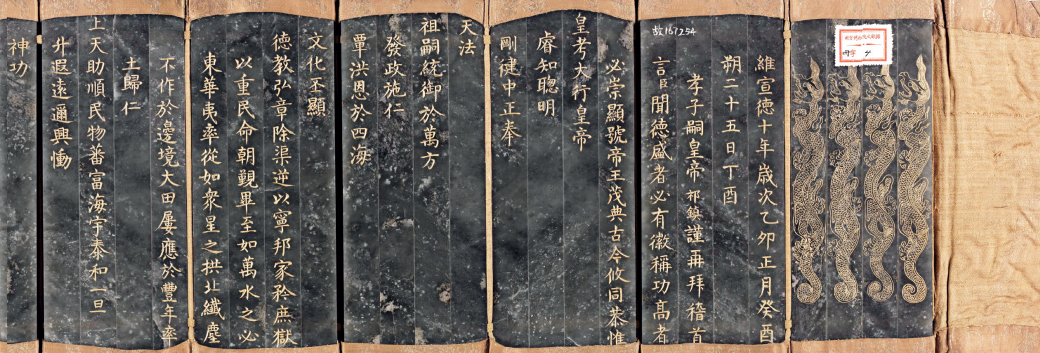 維宣德十年歲次乙卯正月癸酉
朔二十五日丁酉
孝子嗣皇帝祁鎮謹再拜稽首
言曰聞德盛者必有徽稱功高者
必崇顯號帝王茂典古今攸同恭惟
皇考大行皇帝
睿知聰明
剛健中正奉
天法
祖嗣統御於萬方
發政施仁
覃洪恩於四海
文化丕顯
德教弘章除渠逆以寧邦家矜庶獄
以重民命朝覲畢至如萬水之必
東華夷率從如衆星之拱北纖塵
不作於邊境大田屢應於豐年率
土歸仁
上天助順民物蕃富海宇泰和一旦
升遐遠邇興慟
神功
故167254